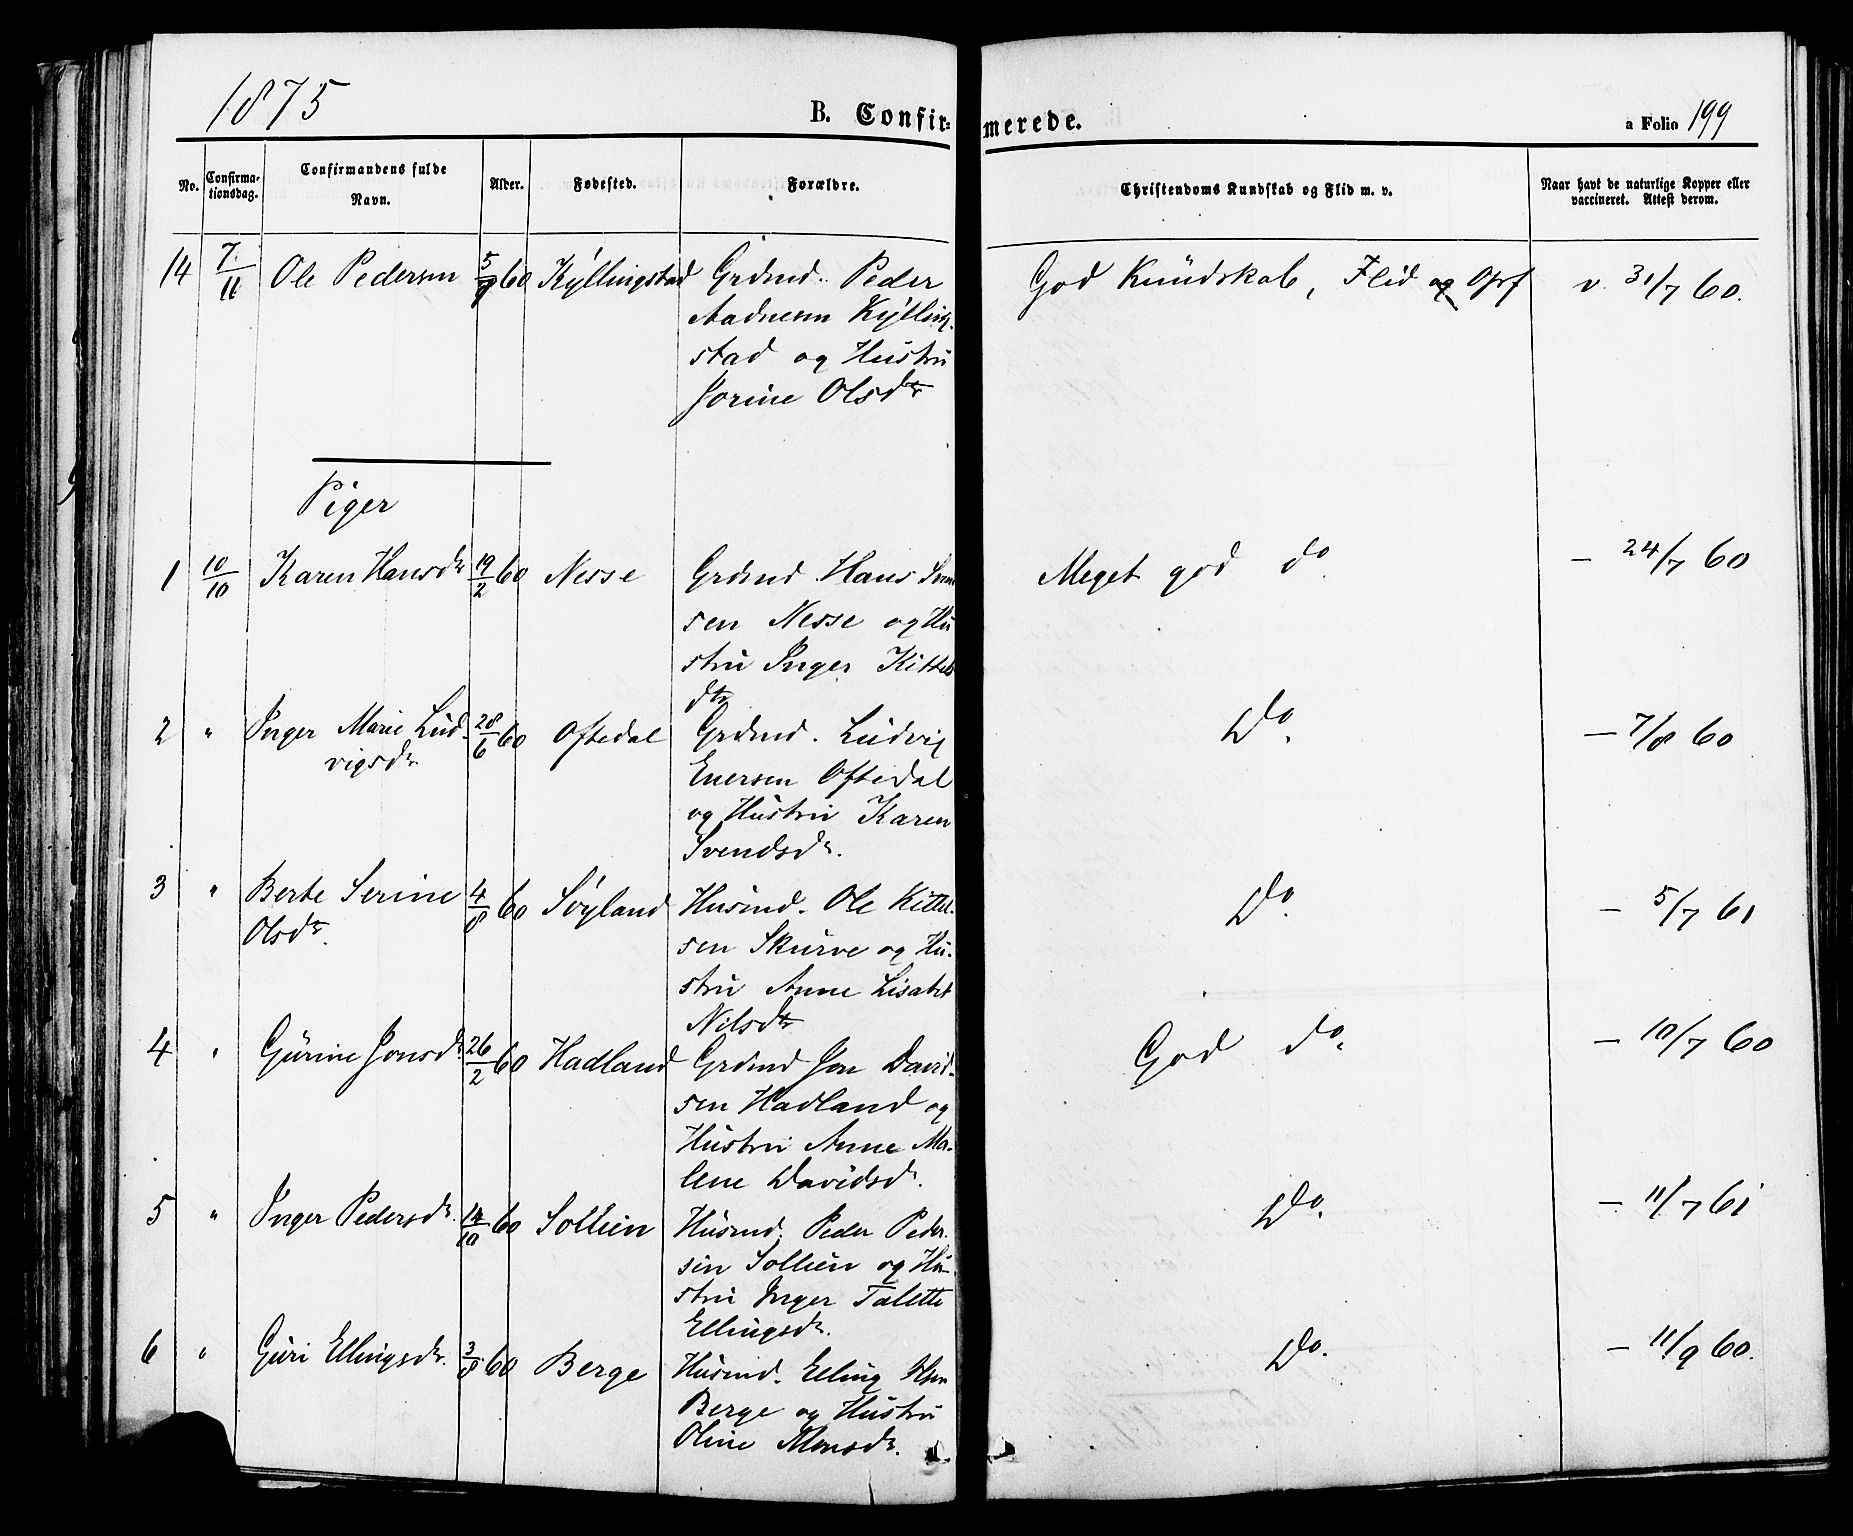 1875
B. Confirmerede.
a Folio 199
No. Confirmationsdag. Confirmandens fulde Navn. Alder. Fødested. Forældre. Christendoms Kundskab og Flid m. v. Naar havt de naturlige Kopper eller vaccineret. Attest derom.
14 7/11 Ole Pedersen 5/9 60 Kyllingstad Grdmd. Peder God Kundskab, Flid og Opf v. 31/7 60.
Aadnesen Kylling-
stad og Hustru
Jorine Olsdtr
Piger
1 10/10 Karen Hansdr 19/2 60 Nesse Grdmd Hans Meget god do - 24/7 60
sen Nesse og Hu
stru Inger Kittels
dtr
2 " Inger Marie Lud- 28/6 60 Oftedal Grdmd. Ludvig Do. - 7/8 60
vigsdr Enersen Oftedal
og Hustru Karen
Svendsdr.
3 " Berte Serine 4/8 60 Søyland Husmd. Ole Kittel- Do. - 5/7 61
Olsdtr. sen Skurve og Hu-
stru Anne Lisabet
Nilsdtr
4 " Gurine Jonsdr. 26/2 60 Hadland Grdmd Jon David- God do. - 10/7 60
sen Hadland og
Hustru Anne Ma-
lene Davidsdr.
5 " Inger Pedersdr. 14/10 60 Sollien Husmd. Peder Peder- Do. - 11/7 61
sen Sollien og Hu-
stru Inger Talette
Ellingsdr.
6 " Guri Ellingsdr. 3/8 60 Berge Husmd. Elling Do. - 11/9 60.
Berge og Hustru
Oline Monsdr.